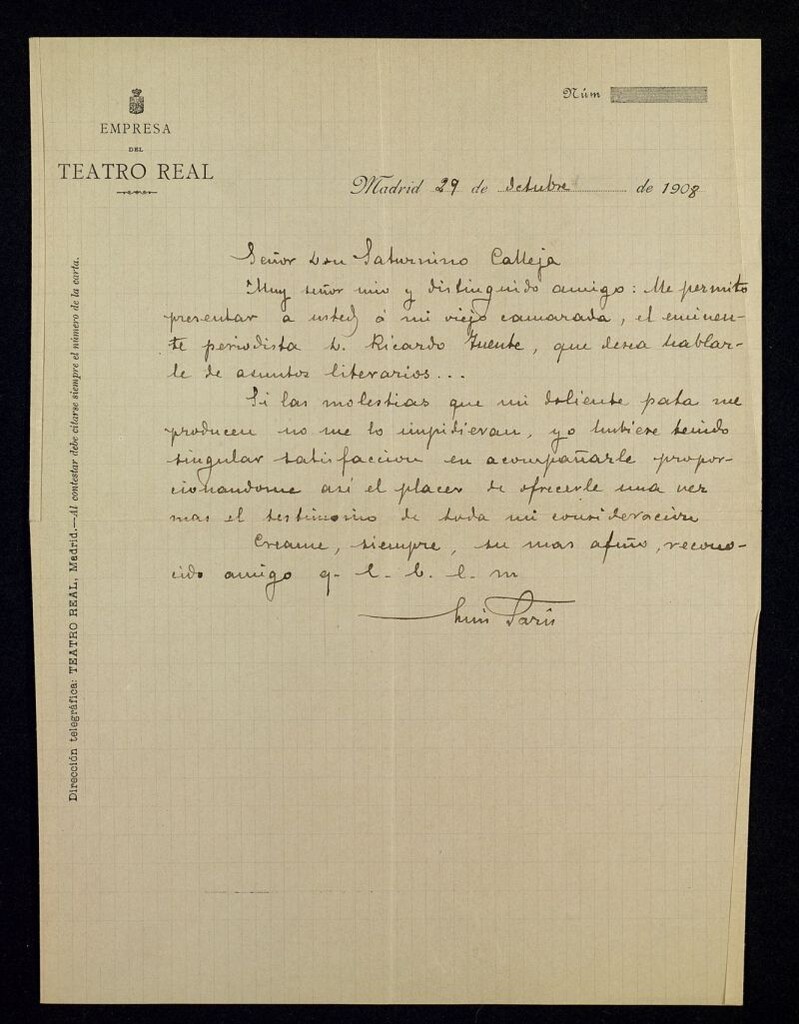 EMPRESA
DEL
TEATRO REAL
Núm
Madrid 29 de Octubre de 1908
Señor Don Saturnino Calleja
Muy señor mio y distinguido amigo: Me permito
presentar a usted á mi viejo camarada, el eminen-
te periodista D. Ricardo Fuente, que desea hablar-
le de asuntos literarios...
Si las molestias que mi doliente pata me
producen no me lo impidieran, yo hubiese tenido
singular satisfaccion en acompañarle propor-
cionandome asi el placer de ofrecerle una vez
mas el testimonio de toda mi consideracion
Creame, siempre, su mas afmo, recono-
cido amigo q. l. b. l. m
Luis Paris
Dirección telegráfica: TEATRO REAL, Madrid.—Al contestar debe citarse siempre el número de la carta.